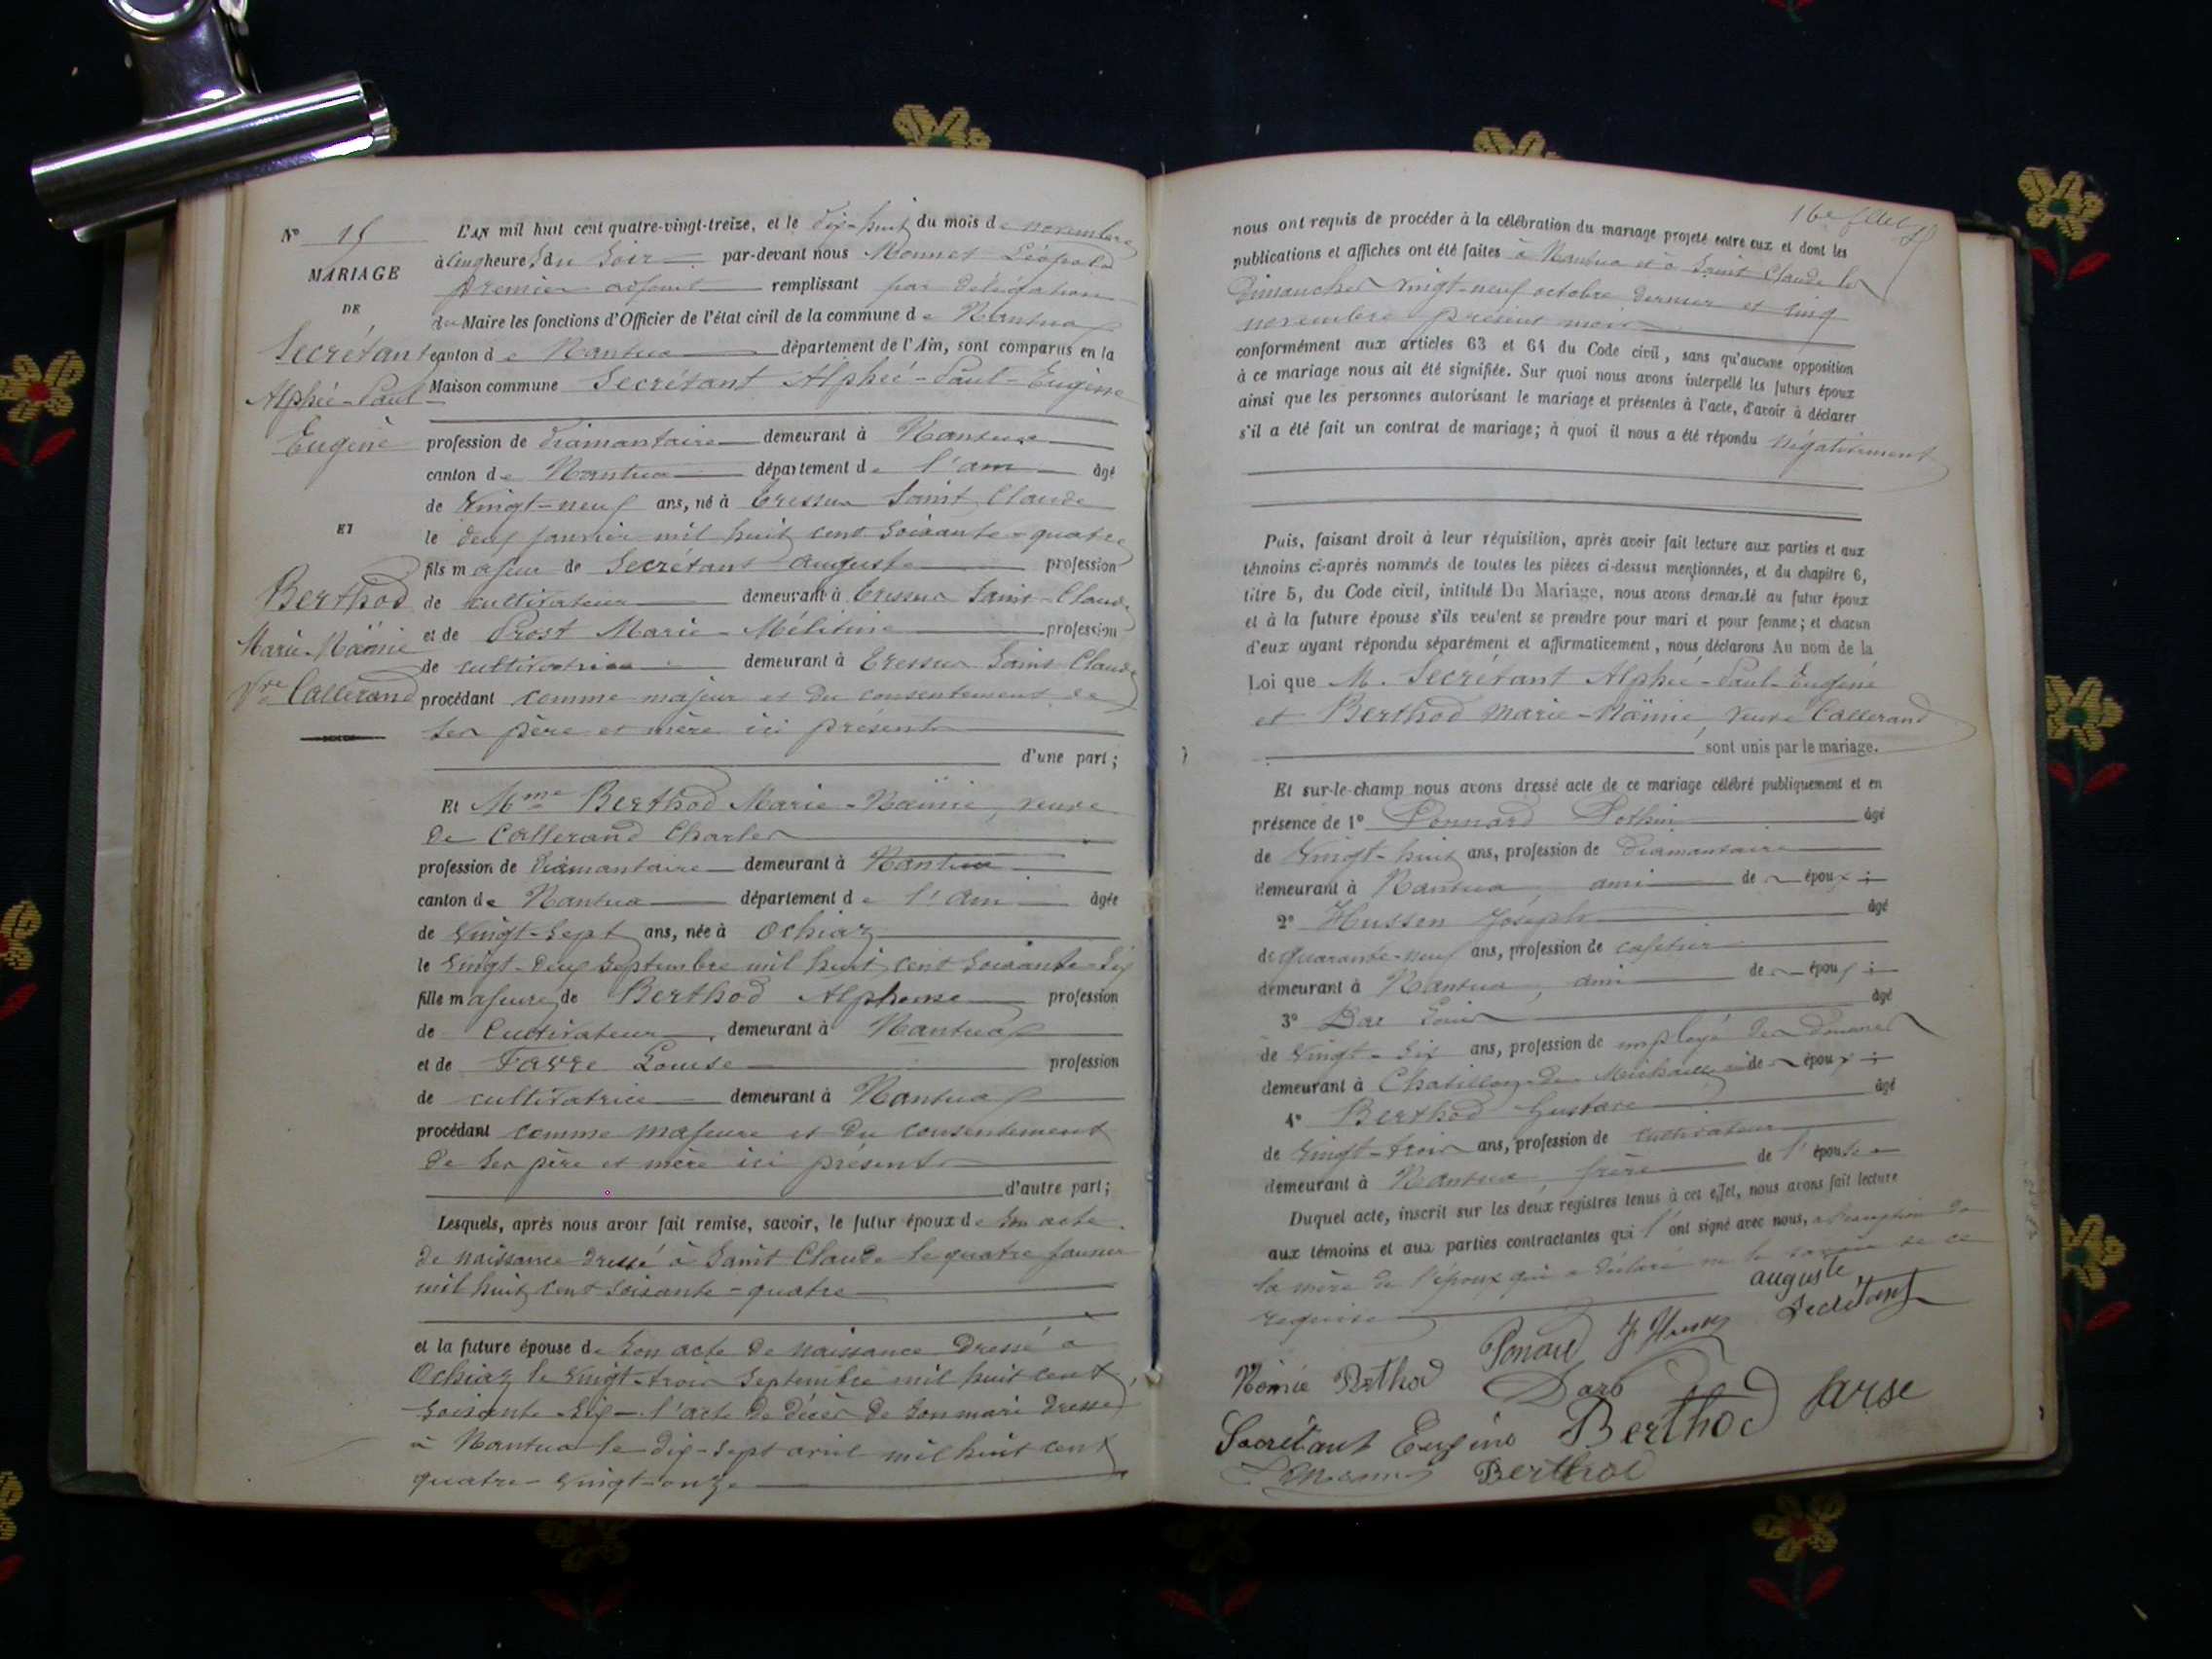 N° 15
MARIAGE
DE
Secrétant
Alphée-Paul-
Eugène
ET
Berthod
Marie-Naömie
Vve Callerand
L'AN mil huit cent quatre-vingt-treize, et le dix-huit du mois de novembre
à cinq heures du soir par-devant nous Monnet Léopold
premier adjoint remplissant par délégation
du Maire les fonctions d'Officier de l'état civil de la commune de Nantua
canton de Nantua département de l'Ain, sont comparus en la
Maison commune Secrétant Alphée-Paul-Eugène
profession de diamantaire demeurant à Nantua
canton de Nantua département de l'ain âgé
de vingt-neuf ans, né à Cressua Saint Claude
le deux janvier mil huit cent soixante-quatre
fils majeur de Secrétant Auguste profession
de cultivateur demeurant à Cressua Saint-Claude
et de Prost Marie-Mélitine profession
de cultivatrice demeurant à Cressua Saint Claude
procédant comme majeur et du consentement de
ses père et mère ici présents
d'une part;
Et Mme Berthod Marie-Naömie, veuve
de Callerand Charles
profession de diamantaire demeurant à Nantua
canton de Nantua département de l'ain âgée
de vingt-sept ans, née à Ochiaz
le vingt-deux septembre mil huit cent soixante-six
fille majeure de Berthod Alphonse profession
de Cultivateur demeurant à Nantua
et de Favre Louise profession
de cultivatrice demeurant à Nantua
procédant comme majeure et du consentement
de ses père et mère ici présents
d'autre part;
Lesquels, après nous avoir fait remise, savoir, le futur époux de son acte
de naissance dressé à Saint Claude le quatre janvier
mil huit cent soixante-quatre
et la future épouse de son acte de naissance dressé à
Ochiaz le vingt-trois septembre mil huit cent
soixante-six - l'acte de décès de son mari dressé
à Nantua le dix-sept avril mil huit cent
quatre-vingt-onze
nous ont requis de procéder à la célébration du mariage projeté entre eux et dont les
publications et affiches ont été faites à Nantua et à Saint Claude les
Dimanches vingt-neuf octobre dernier et cinq
novembre présent mois
conformément aux articles 63 et 64 du Code civil, sans qu'aucune opposition
à ce mariage nous ait été signifiée. Sur quoi nous avons interpellé les futurs époux
ainsi que les personnes autorisant le mariage et présentes à l'acte, d'avoir à déclarer
s'il a été fait un contrat de mariage; à quoi il nous a été répondu négativement
Puis, faisant droit à leur réquisition, après avoir fait lecture aux parties et aux
témoins ci-après nommés de toutes les pièces ci-dessus mentionnées, et du chapitre 6,
titre 5, du Code civil, intitulé Du Mariage, nous avons demandé au futur époux
et à la future épouse s'ils veulent se prendre pour mari et pour femme; et chacun
d'eux ayant répondu séparément et affirmativement, nous déclarons Au nom de la
Loi que M. Secrétant Alphée-Paul-Eugène
et Berthod Marie-Naömie, veuve Callerand
sont unis par le mariage.
Et sur-le-champ nous avons dressé acte de ce mariage célébré publiquement et en
présence de 1° Ponnard Pothin âgé
de vingt-huit ans, profession de diamantaire
demeurant à Nantua, ami de époux;
2° Husson Joseph âgé
de quarante-neuf ans, profession de cafetier
demeurant à Nantua, ami de époux;
3° Louis âgé
de vingt-six ans, profession de employé des douanes
demeurant à Chatillon-de-Michaille de époux;
4° Berthod Gustave âgé
de vingt-trois ans, profession de cultivateur
demeurant à Nantua frère de l'épouse
Duquel acte, inscrit sur les deux registres tenus à cet effet, nous avons fait lecture
aux témoins et aux parties contractantes qui l'ont signé avec nous, à l'exception de
la mère de l'époux qui a déclaré ne le savoir de ce
requise
auguste
Secrétant
Ponard J Husson
Nomie Berthod
Secrétant Eugène Berthod
Berthod